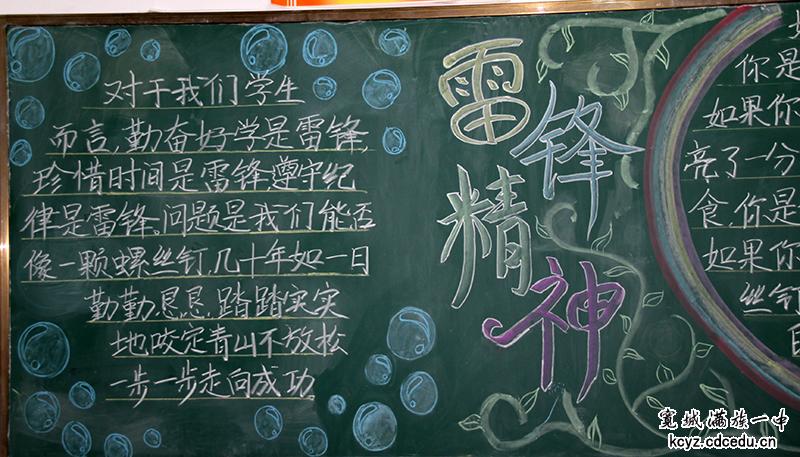 对于我们学生
而言,勤奋好学是雷锋,
珍惜时间是雷锋,遵守纪
律是雷锋。问题是我们能否
像一颗螺丝钉,几十年如一日
勤勤恳恳,踏踏实实
地,咬定青山不放松
一步一步走向成功
雷锋
精神
如
你是
如果你
亮了一分
食,你是
如果你
丝钉
宽城满族一中
kcyz.cdcedu.cn